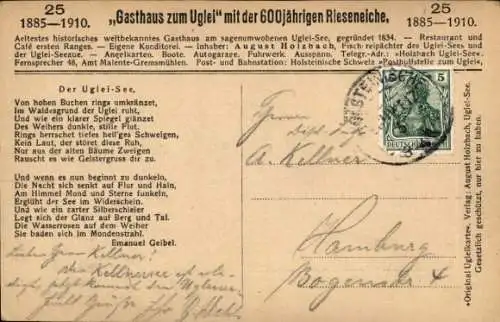 25
1885—1910.
„Gasthaus zum Uglei" mit der 600jährigen Rieseneiche.
25
1885—1910.
Aeltestes historisches weltbekanntes Gasthaus am sagenumwobenen Uglei-See, gegründet 1834. — Restaurant und
Café ersten Ranges. — Eigene Konditorei. — Inhaber: August Holzbach, Fischereipächter des Uglei-See und
der Uglei-Seeaue. — Angelkarten. Boote. Autogarage. Fuhrwerk. Ausspann. „Holzbach Uglei-See".
Fernsprecher 48, Amt Malente-Gremsmühlen. Post- und Bahnstation: Holsteinische Schweiz „Posthülfstelle zum Uglei".
Der Uglei-See.
Von hohen Buchen rings umkränzet,
Im Waldesgrund der Uglei ruht,
Und wie ein klarer Spiegel glänzet
Des Weihers dunkle, stille Flut.
Rings herrschet tiefes heil'ges Schweigen,
Kein Laut, der stört diese Ruh,
Nur aus der alten Bäume Zweigen
Rauscht es wie Geistergruss dir zu.
Und wenn es nun beginnt zu dunkeln,
Die Nacht sich senkt auf Flur und Hain,
Am Himmel Mond und Sterne funkeln,
Erglüht der See im Widerschein.
Und wie ein zarter Silberschleier
Legt sich der Glanz auf Berg und Tal.
Die Wasserrosen auf dem Weiher
Sie baden sich im Mondenstrahl.
Emanuel Geibel.
5
Herrn
A. Kellner
Hamburg
Bogenstr 4
Lieber Herr Kellner!
Der Kellersee ist
Grüße
*Original Ugleikarte«. Verlag: August Holzbach, Uglei-See.
Gesetzlich geschützt, nur hier zu haben.